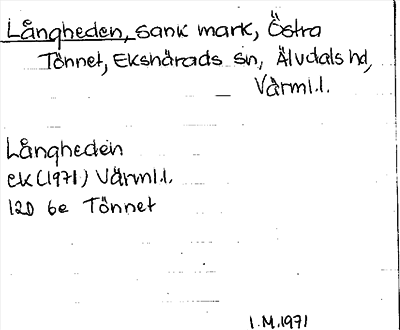 Långheden, sank mark, Östra
Tönnet, Ekshärads sn, Älvdals hd,
Värml.l.
Långheden
ek (1971) Värml.l.
12D 6e Tönnet
I.M.1971